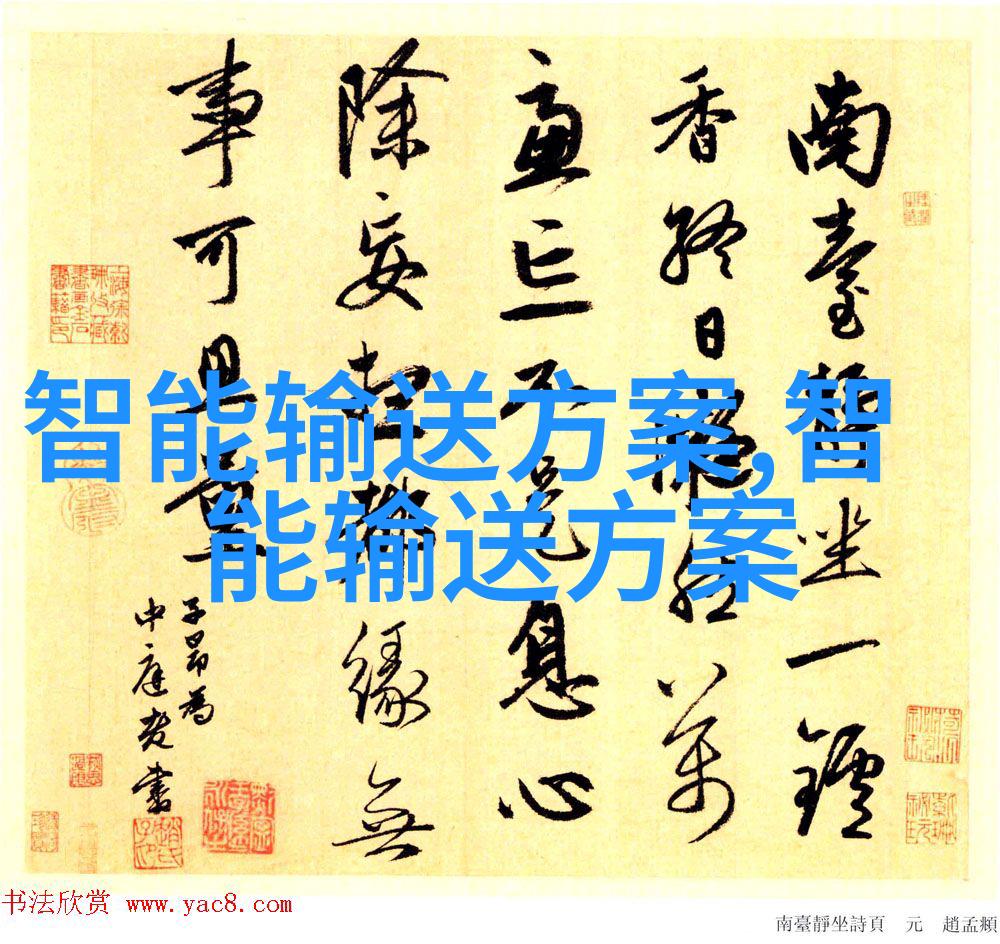 智能输送方案,智
能输送方案
南臺靜坐一鑪
香終日凝然萬
慮亡不是息心
除妄想緣無
事可思量
子昂為
中庭老書
书法欣赏 www.yac8.com
南臺靜坐詩頁 元 趙孟頫